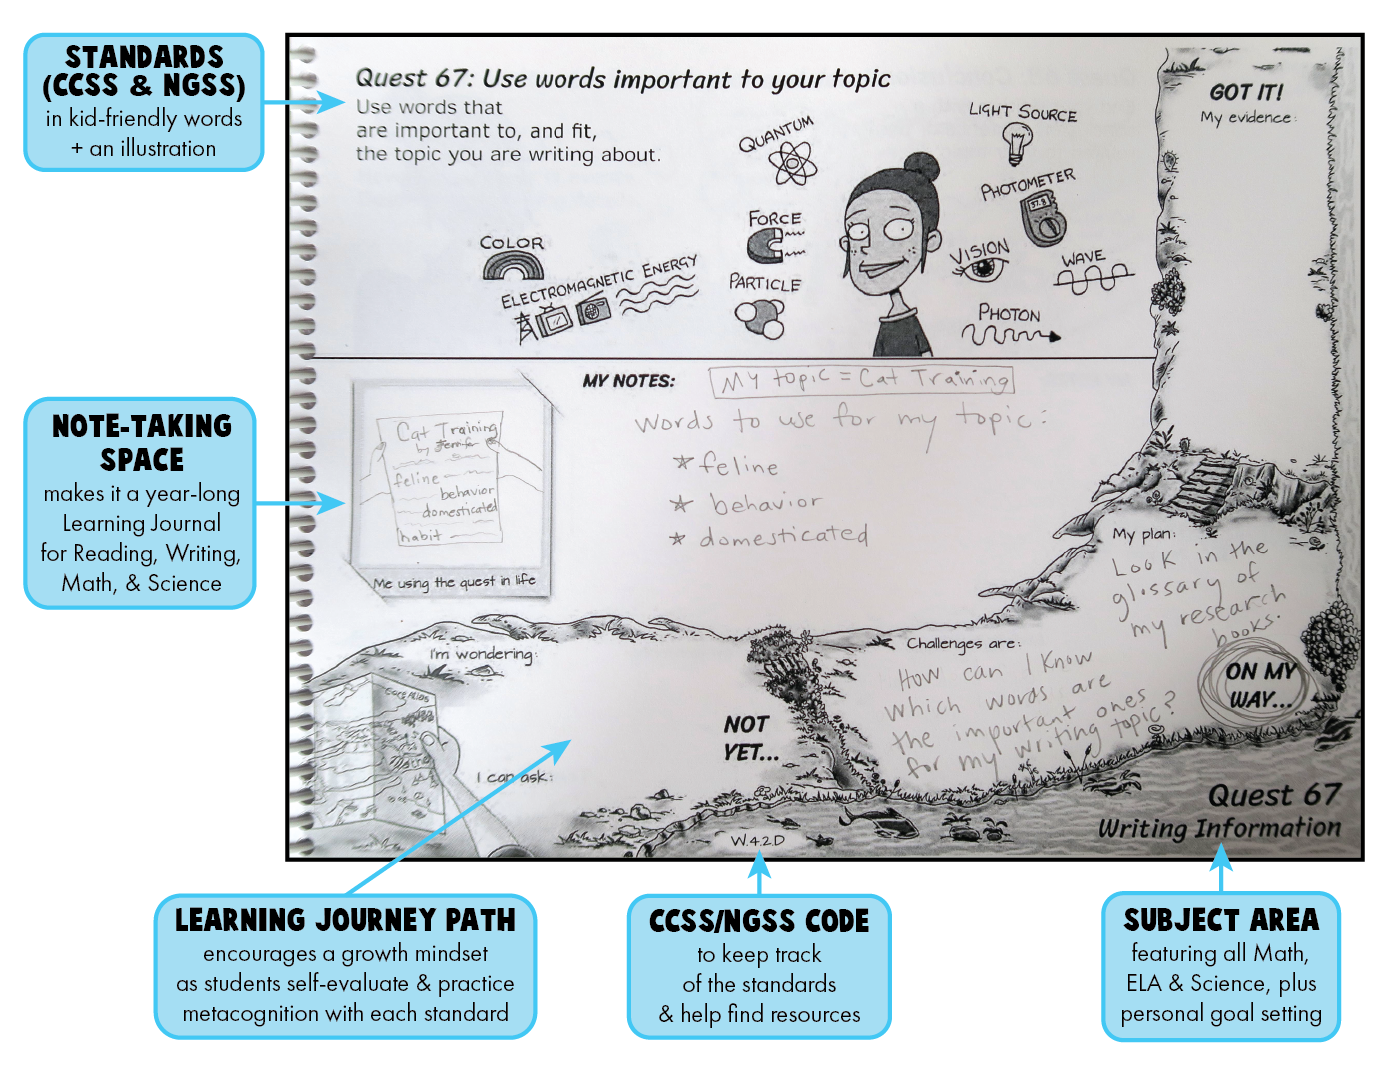 STANDARDS
(CCSS & NGSS)
in kid-friendly words
+ an illustration
NOTE-TAKING
SPACE
makes it a year-long
Learning Journal
for Reading, Writing,
Math, & Science
Quest 67: Use words important to your topic
Use words that
are important to, and fit,
the topic you are writing about.
COLOR
ELECTROMAGNETIC ENERGY
QUANTUM
FORCE
PARTICLE
LIGHT SOURCE
PHOTOMETER
37.8
VISION
WAVE
PHOTON
GOT IT!
My evidence:
MY NOTES:
My topic = Cat Training
Words to use for my topic:
* feline
* behavior
* domesticated
Cat Training
by Jennifer
feline
behavior
domesticated
habit
Me using the quest in life
I'm wondering:
I can ask:
NOT
YET...
Challenges are:
How can I know
which words are
the important ones
for my writing topic?
My plan:
Look in the
glossary of
my research
books.
ON MY
WAY...
Quest 67
Writing Information
W.4.2.D
LEARNING JOURNEY PATH
encourages a growth mindset
as students self-evaluate & practice
metacognition with each standard
CCSS/NGSS CODE
to keep track
of the standards
& help find resources
SUBJECT AREA
featuring all Math,
ELA & Science, plus
personal goal setting